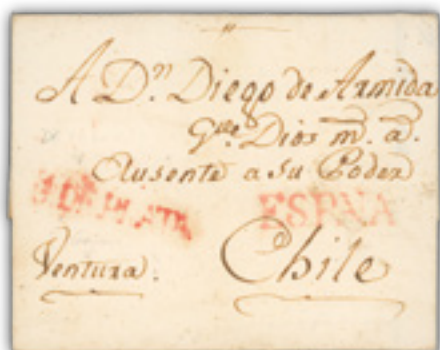 A Dⁿ. Diego de Armida
Gue. Dios m. a.
Ausente a Su Poder
DE PLATA
ESPAÑA
Ventura.
Chile